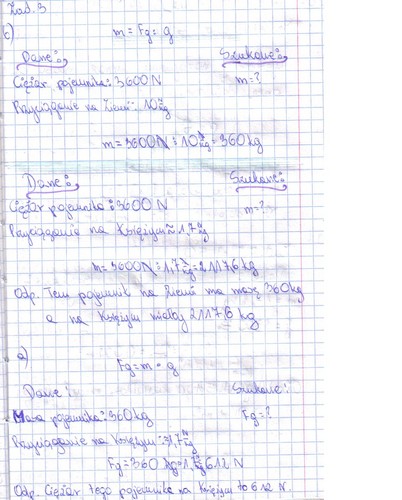 Zad. 3
b) m = Fg : g
Dane: Szukane:
Ciężar pojemnika: 3600 N m = ?
Przyciąganie na Ziemi: 10 N/kg
m = 3600 N : 10 N/kg = 360 kg
Dane: Szukane:
Ciężar pojemnika: 3600 N m = ?
Przyciąganie na Księżycu ≈ 1,7 N/kg
m = 3600 N : 1,7 N/kg = 2117,6 kg
Odp. Ten pojemnik na Ziemi ma masę 360 kg
a na Księżycu miałby 2117,6 kg
a) Fg = m · g
Dane: Szukane:
Masa pojemnika: 360 kg Fg = ?
Przyciąganie na Księżycu: 1,7 N/kg
Fg = 360 kg · 1,7 N/kg 612 N
Odp. Ciężar tego pojemnika na Księżycu to 612 N.